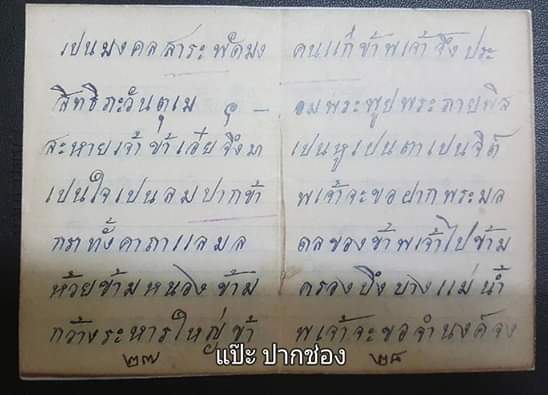 เปนมงคลสาระพัดมง
สิทธิภะวันตุเม
สะหายเจ้าข้าเอ๋ยจึงมา
เปนใจเปนลมปากข้า
กราทั้งคาถาแลมล
ห้วยข้ามหนองข้าม
กว้างระหารใหญ่ข้า
๒๗
คนแก่ข้าพเจ้าจึงประ
อมพระพูปพระภายพิส
เปนหูเปนตาเปนจิต
พเจ้าจะขอฝากพระมล
ดลของข้าพเจ้าไปข้าม
ครองบึงบางแม่น้ำ
พเจ้าจะขอจำนงค์จง
๒๘
แป๊ะ ปากช่อง